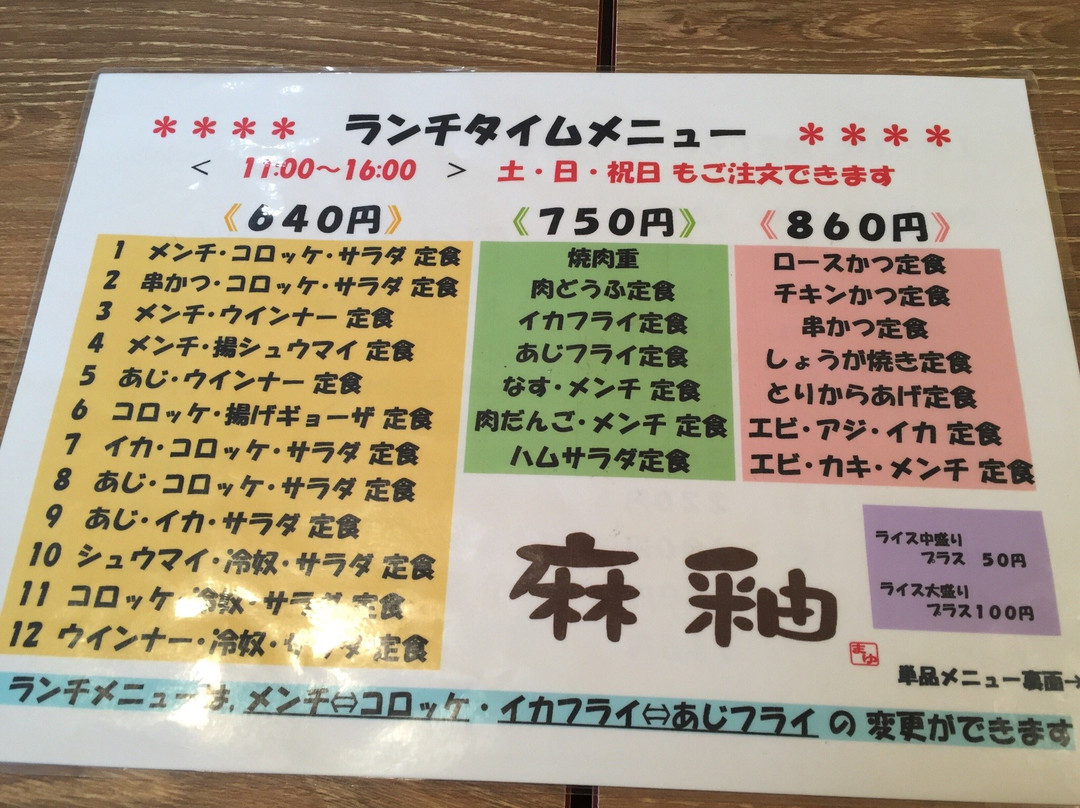 ＊＊＊＊ ランチタイムメニュー ＊＊＊＊
< 11:00～16:00 > 土・日・祝日 もご注文できます
《640円》
1 メンチ・コロッケ・サラダ 定食
2 串かつ・コロッケ・サラダ 定食
3 メンチ・ウインナー 定食
4 メンチ・揚シュウマイ 定食
5 あじ・ウインナー 定食
6 コロッケ・揚げギョーザ 定食
7 イカ・コロッケ・サラダ 定食
8 あじ・コロッケ・サラダ 定食
9 あじ・イカ・サラダ 定食
10 シュウマイ・冷奴・サラダ 定食
11 コロッケ・冷奴・サラダ 定食
12 ウインナー・冷奴・サラダ 定食
《750円》
焼肉重
肉どうふ定食
イカフライ定食
あじフライ定食
なす・メンチ 定食
肉だんご・メンチ 定食
ハムサラダ定食
《860円》
ロースかつ定食
チキンかつ定食
串かつ定食
しょうが焼き定食
とりからあげ定食
エビ・アジ・イカ 定食
エビ・カキ・メンチ 定食
麻釉
まゆ
ライス中盛り
プラス 50円
ライス大盛り
プラス100円
単品メニュー裏面→
ランチメニューは、メンチ⇔コロッケ・イカフライ⇔あじフライ の 変更ができます